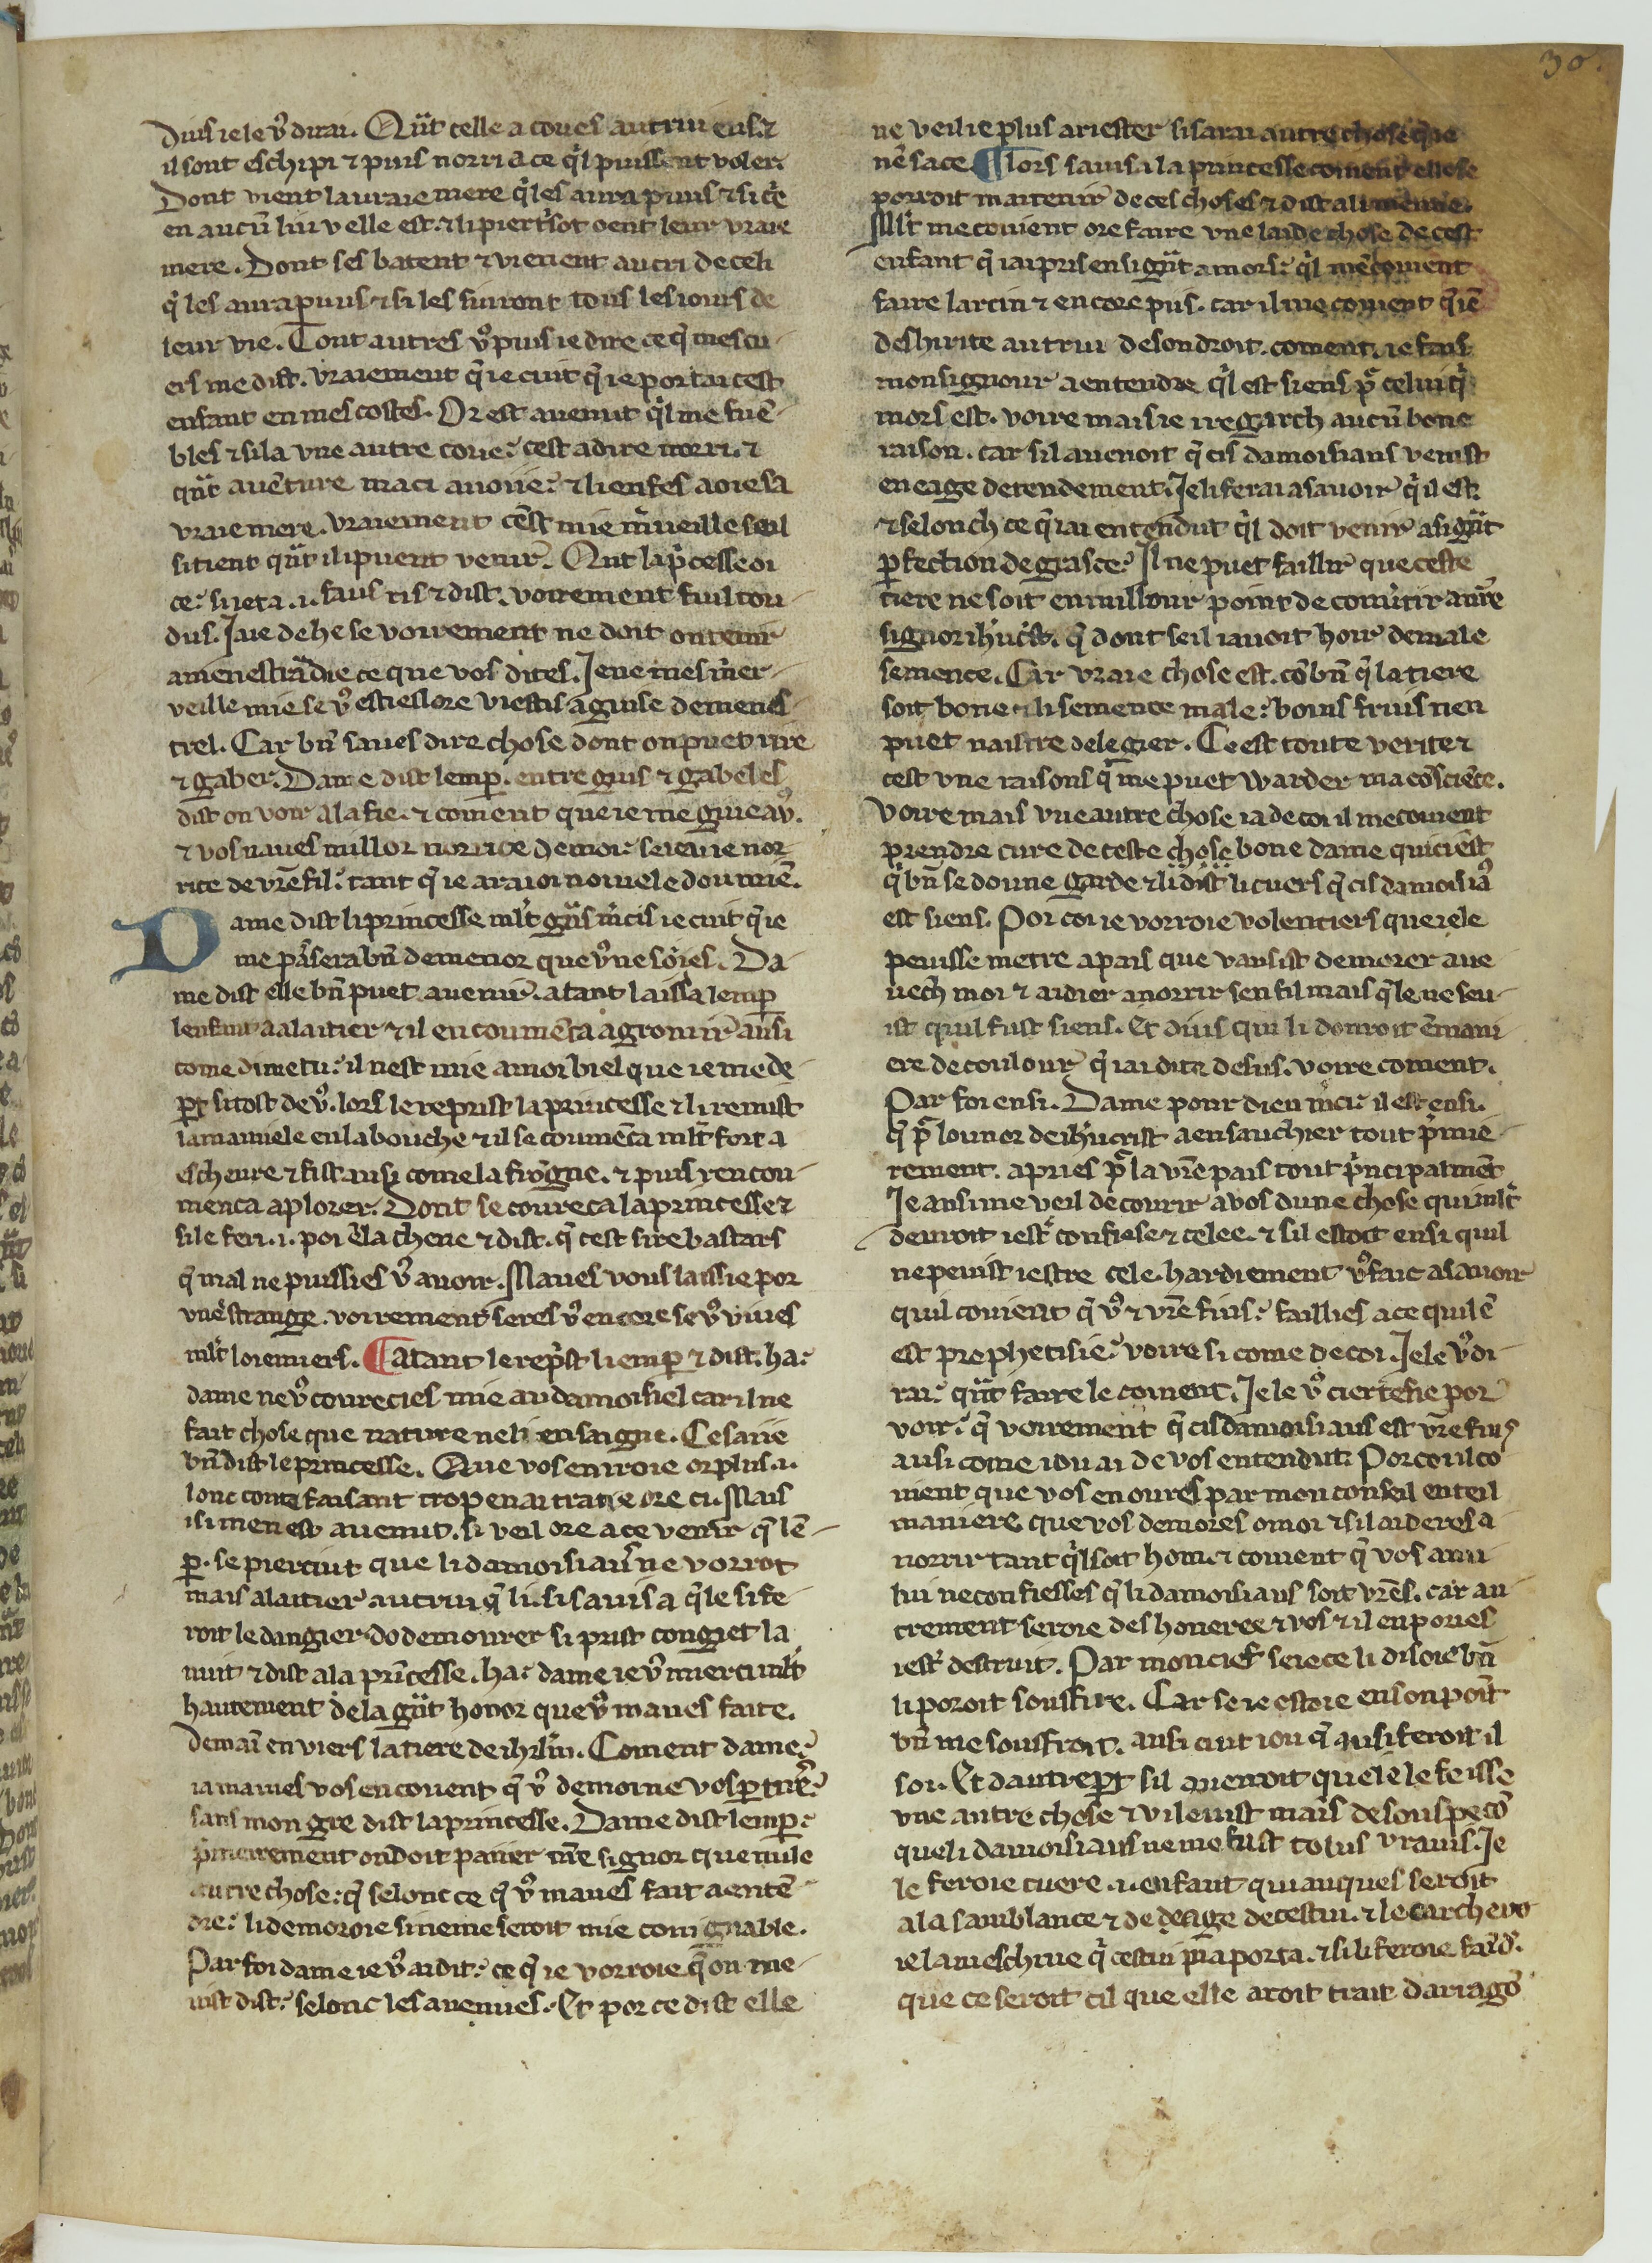 30.
Duis ie le v9 dirai. Qñt celle a coues autrui eus. ⁊
il sont eschipi ⁊ puis norri a ce ql puissent voler.
Dont vient la vraie mere qͥ les aura puns ⁊ si crie
en aucū liu v elle est. ⁊ li piertsot oent leur vraie
mere. Dont ses batent ⁊ vienent au cri de celi
qͥ les aura puns ⁊ si les siuront tous les iours de
leur vie. Tout autres v9 puis ie dire ce q̄ mes cu-
ers me dist. vraiement q̄ ie cuit q̄ ie portai cest
enfant en mes costes. Or est auenut ql me fu ē-
bles ⁊ si la vne autre coue: cest a dire norri. ⁊
qñt auēture ma ci auoiie: ⁊ li enfes a oie sa
vraie mere. vraiement cēst mie mͥueille se il
si tient qñt il i puent venir. Qnt la pͥcesse oi
ce: si ieta .i. faus ris ⁊ dist. voirement fuil cou-
dus. Iaie dehe se voirement ne doit on tenir
a menestrādie ce que vos dites. Ie ne mes mͥer-
veille mie se v9 esties lore viestis a guise de menes-
trel. Car bñ saues dire chose dont on puet rire
⁊ gaber. Dame dist lemp. entre guis ⁊ gabeles
dist on voir a la fie. ⁊ coment que ie me guie a v9.
⁊ vos naues millor norrice de moi: se ie ne nor
rice de vrē fil: tant q̄ ie arai oi nouele dou miē.
Dame dist li princesse mlt gñs mͥcis ie cuit q̄ ie
me pāserai bñ de menor que v9 ne soies. Da-
me dist elle bñ puet auenir. atant laissa lemp
lenfant a alaitier ⁊ il en coumēca a gronir ausi
come dime tu: il nest mie a moi biel que ie me de-
pt si tost de v9. lors le reprist la princesse ⁊ li remist
la mamele en la bouche ⁊ il se coumēca mlt fort a
escheure ⁊ fist ausi come la frogne. ⁊ puis rencou-
menca a plorer. Dont se coureca la princesse ⁊
si le feri .i. poi ē la chere ⁊ dist. q̄ cest sire bastars
q̄ mal ne puissies v9 auoir. Maues vous laissie por
vne strange. voirement seres v9 encore se v9 viues
mlt loiemiers. ¶ Atant le repͥst li emp ⁊ dist. ha:
dame ne v9 courecies mie au damoisiel car il ne
fait chose que nature ne li ensaigne. Ce sai ie
bñ dist le princesse. Que vos en iroie or plus .i.
lonc conte faisant trop en ai traitie ore cu. Mais
isi men est auenut. si veil ore a ce venir q̄ lē-
p. se pierciut que li damoisiaus ne vorrot
mais alaitier autrui q̄ li. si sauisa q̄ le si fe
roit le dangier do demourer si prist congiet la
nuit ⁊ dist a la prīcesse. ha: dame ie v9 mierci mlt
hautement de la gñt honor que v9 maues faite.
Demaī en viers la tiere de ihrl'm. Coment dame:
ia maues vos en couent q̄ v9 de moi ne vos ptirē:
sans mon gre dist la princesse. Dame dist lemp:
pͥmierement on doit paiier nrē signor que nule
autre chose: q̄ selonc ce q̄ v9 maues fait a entē-
dre: li demoroie si ne me seroit mie conignable.
Par foi dame ie v9 ai dit: ce q̄ ie vorroie q̄ on me
uist dist: selonc les auenues. Et por ce dist elle
ne veil ie plus ariester si sarai autre chose que
nē sace. ¶ Lors sauisa la princesse coment elle se
pouroit maintenir de ces choses ⁊ dist a li meime.
Mlt me couient ore faire vne laide chose de cest
enfant q̄ iai pris en si gñt amors: ql mē couient
faire larcin ⁊ encore pis. car il me couient q̄ iē
deshirite autrui de son droit. coment. ie fais
monsignour a entendre ql est siens pͣ celui qͥ
mors est. voire mais ie i regarch aucū bone
raison. car sil auenoit q̄ cis damoisiaus venist
en eage dentendement. Ie li ferai asauoir qͥ il est.
⁊ selonch ce q̄ iai entendut ql doit venir a si gñt
pfection de grasce: Il ne puet faillir que ceste
tiere ne soit en millour point de couͥtir a nrē
signor ihucͥst. q̄ dont se il i auoit hoir de male
semence. Car vraie chose est. cōbñ q̄ la tiere
soit bone ⁊ li semence male: boins fruis nen
puet naistre de legier. Ce est toute verite ⁊
cest vne raisons qͥ me puet warder ma cōsciēce.
Voire mais vne autre chose i a de coi il me couient
prendre cure de ceste chose bone dame qui ci ēst
qͥ bñ se doune garde ⁊ li dist li cuers q̄ cis damoisia9
est siens. Por coi ie vorroie volentiers que ie le
peuisse metre a pais que vausist demorer aue
uech moi ⁊ aidier a norrir sen fil mais q̄ le ne seu-
ist quil fust siens. Et dius qui li donroit ē mani
ere de coulour q̄ iai dite desus. voire coment.
Par foi ensi. Dame pour dieu mͥci: il est ensi.
q̄ pͣ lounor de ihucrist a ensauchier tout pͥmie-
rement. apries pͣ la vrē pais tout pͥncipalmēt
Ie ausi me veil decourir a vos dune chose qui mlt
deuroit iestͥ confiese ⁊ celee. ⁊ sil estoit ensi quil
ne peuist iestre cele. hardiement v9 fac asauoir
quil couient q̄ v9 ⁊ vrē fius: faillies a ce quil ē
est prophetisie: voire si come de coi. Ie le v9 di-
rai: qñt faire le coment. Ie le v9 ciertefie por
voir: q̄ voirement q̄ cis damoisiaus est vrē fius
ausi come iou ai de vos entendut. Por coi il co
uient que vos en oures par mon conseil en teil
maniere que vos demores o moi ⁊ si laideres a
norrir tant ql soit hom. ⁊ coment q̄ vos a nu
lui ne confiesses q̄ li damoisiaus soit vrēs. car au-
trement seroie deshoneree ⁊ vos ⁊ il en pories
iestͥ destruit. Par mon cief se ie ce li disoie bñ
li poroit souffire. Car se ie estoie en son poīt
bñ me souffiroit. ausi cuit iou q̄ ausi feroit il
soi. Et dautre pt sil auenoit que ie le feisse
vne autre chose ⁊ vilenist mais de souspecō
que li damoisiaus ne me fust tolus vraus. Ie
le feroie cuere .i. enfant qui auques seroit
a la samblance ⁊ de de eage de cestui. ⁊ le carcheroe
ie la meschine qͥ cestui ma porta. ⁊ si li feroie faͥ dͤ.
que ce seroit cil que elle aroit trait darrago